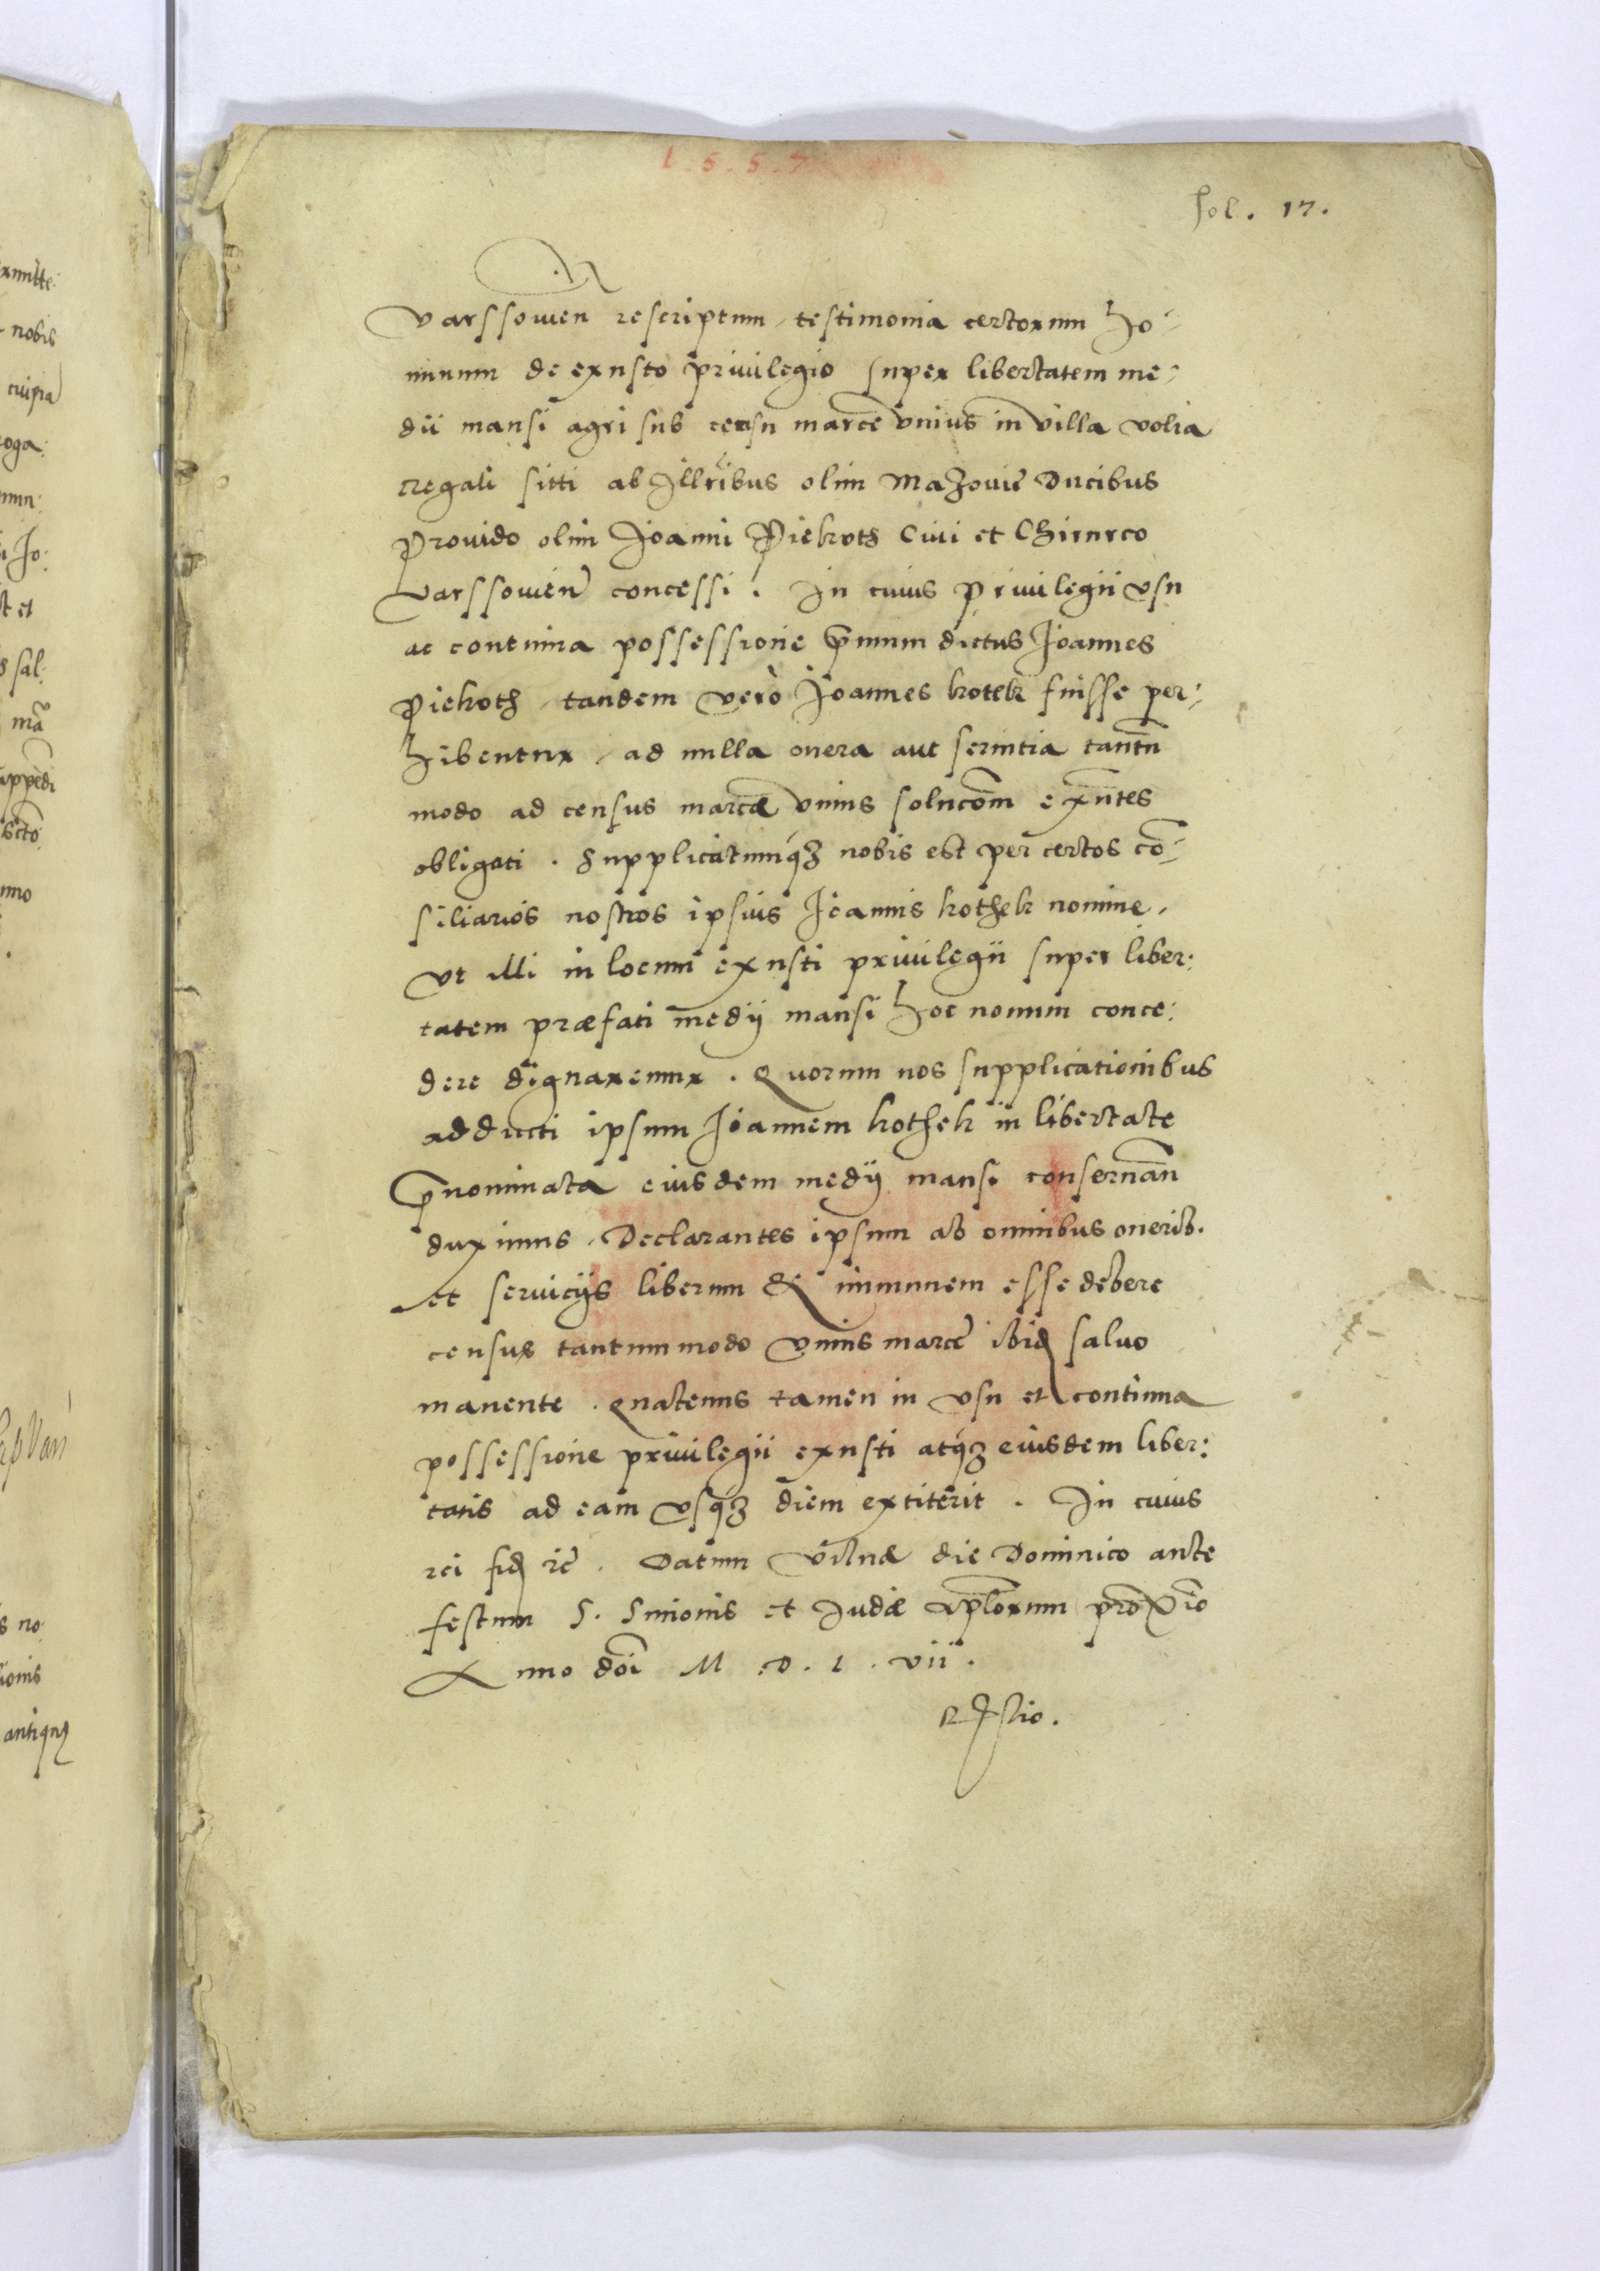 1.5.5.7
fol. 17.
Varssowien rescriptum, testimonia certorum ho-
minum de exusto privilegio super libertatem me-
dii mansi agri sub censu marce unius in villa volia
regali sitti ab Illribus olim Mazovie Ducibus
Provido olim Joanni Piekoth Civi et Chirurco
Varssowien concessi. In cuius privilegii usu
ac continua possessione primum dictus Joannes
Piekoth, tandem verò Joannes kotek fuisse per:
hibentur, ad nulla onera aut servitia tantu
modo ad census marcæ unius solucom exntes
obligati. Supplicatumqz nobis est per certos co-
siliarios nostros ipsius Joannis kothek nomine,
Ut illi in locum exusti privilegii super liber:
tatem præfati medij mansi hoc novum conce:
dere dignaremur. Quorum nos supplicationibus
adducti ipsum Joannem kothek in libertate
prenominata eiusdem medij mansi conservan
duximus, Declarantes ipsum ab omnibus onerib.
et servicijs liberum & immunem esse debere
census tantummodo unius marce ibid salvo
manente. Quatenus tamen in usu et continua
possessione privilegii exusti atqz eiusdem liber:
tatis ad eam usqz diem extiterit. In cuius
rei fid rc. Datum Vilnæ die Dominico ante
festum S. Simonis et Judæ Aplorum proxio
Anno doi M.D.L.vii.